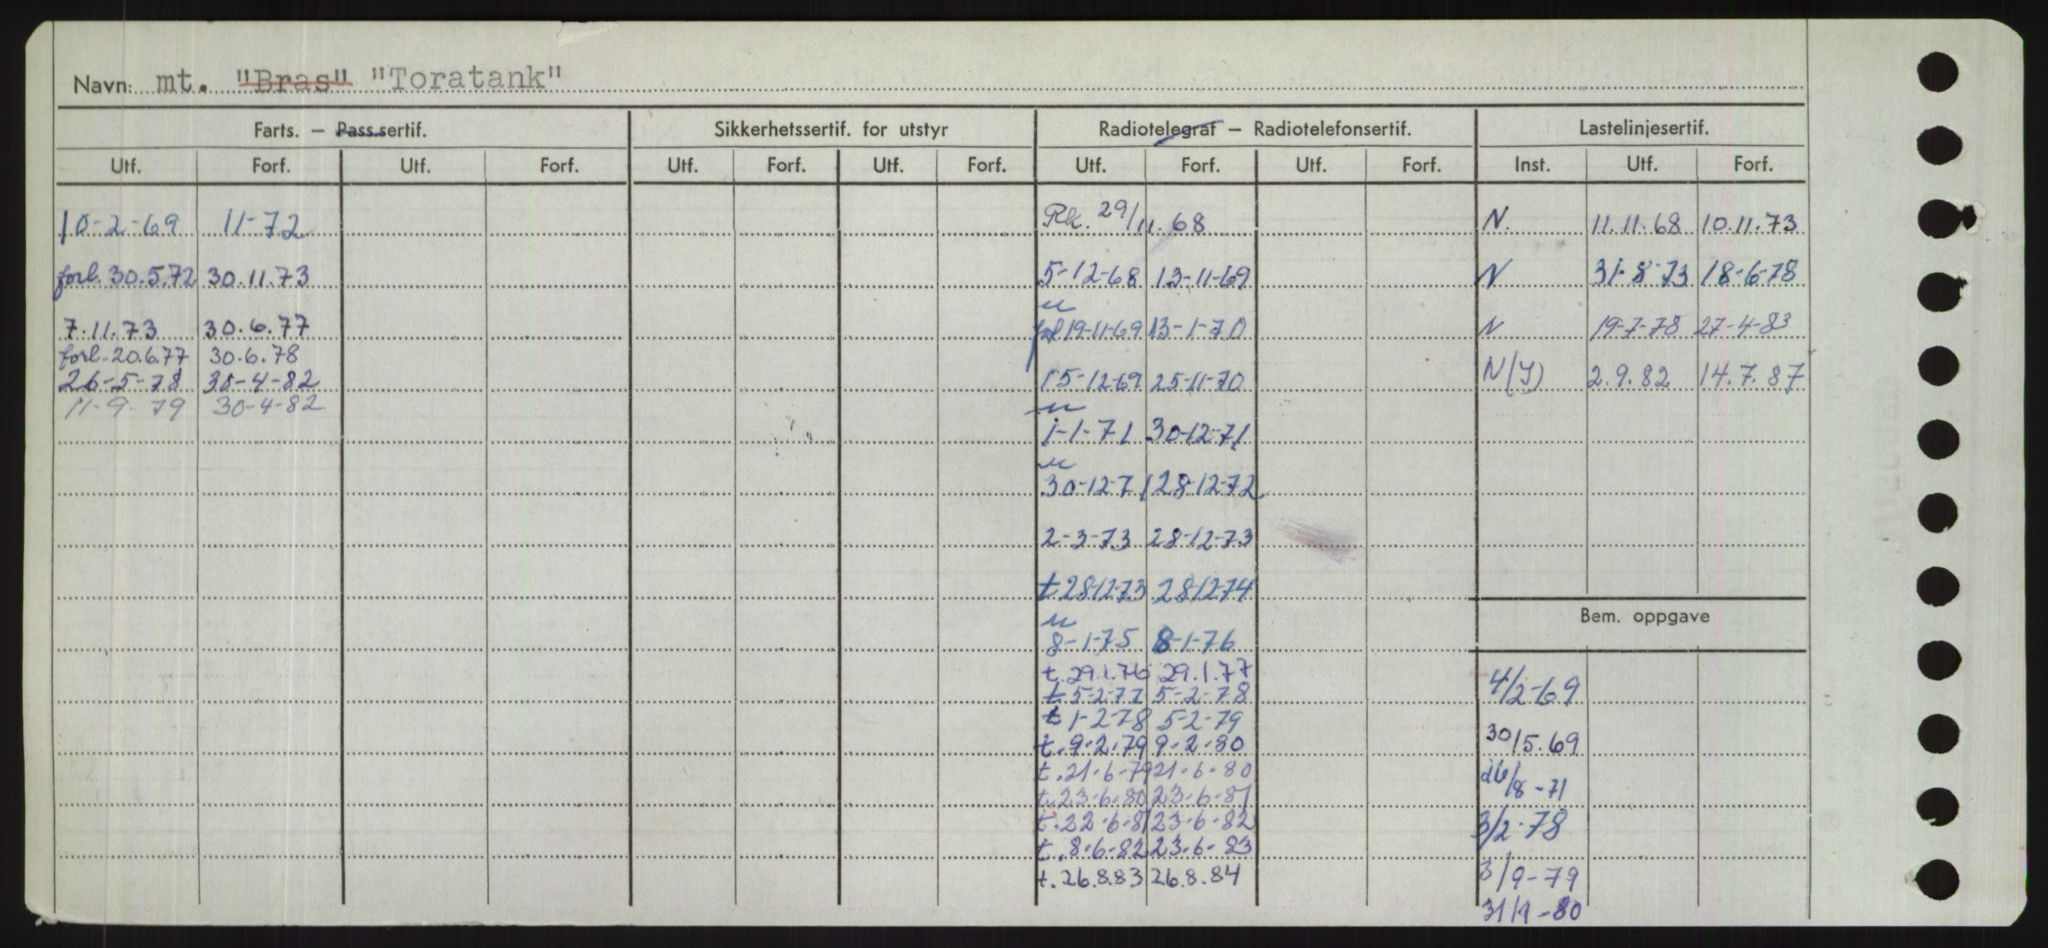 Navn: mt. "Bras" "Toratank"
Farts. — Pass.sertif. Sikkerhetssertif. for utstyr Radiotelegraf — Radiotelefonsertif. Lastelinjesertif.
Utf. Forf. Utf. Forf. Utf. Forf. Utf. Forf. Utf. Forf. Utf. Forf. Inst. Utf. Forf.
10-2-69 11-72 Rk. 29/11.68 N. 11.11.68 10.11.73
forl. 30.5.72 30.11.73 5-12-68 13-11-69 N 31-8-73 18-6-78
u
7.11.73 30.6.77 forl 19-11-69 13-1-70 N 19-7-78 27-4-83
forl. 20.6.77 30.6.78
26-5-78 30-4-82 15-12-69 25-11-70 N(I) 2.9.82 14.7.87
11-9-79 30-4-82 u
1-1-71 30-12-71
u
30-12-71 28-12-72
2-3-73 28-12-73
t 28-12-73 28-12-74
Bem. oppgave
u
8-1-75 8-1-76
t. 29.1.76 29.1.77
4/2-69
t 5-2-77 5-2-78
t 1-2-78 5-2-79
30/5.69
t. 9-2-79 9-2-80
t. 21-6-79 21-6-80
26/8-71
t. 23-6-80 23-6-81
t. 22-6-81 23-6-82
3/2-78
t. 8-6-82 23-6-83
t. 26.8.83 26.8.84
3/9-79
31/1-80